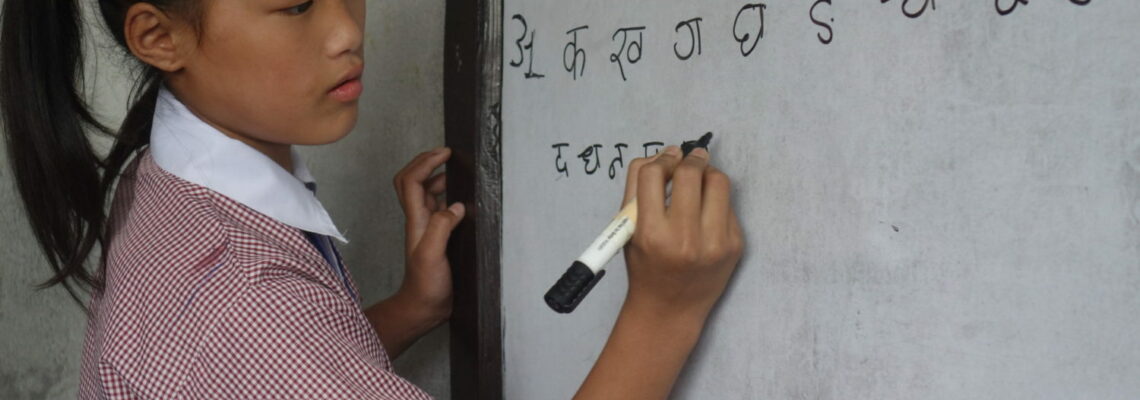 अ क ख ग घ ङ
द ध न प